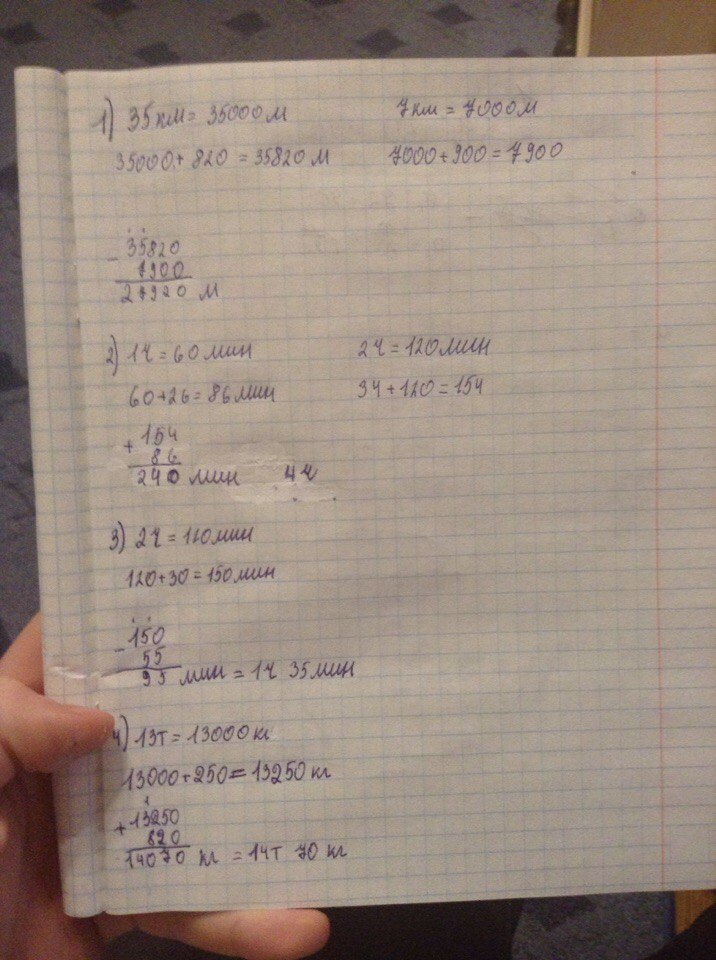 1) 35 км = 35000 м 7 км = 7000 м
35000 + 820 = 35820 м 7000 + 900 = 7900
- 35820
7900
27920 м
2) 1ч = 60 мин 2ч = 120 мин
60 + 26 = 86 мин 34 + 120 = 154
+ 154
86
240 мин 4ч
3) 2ч = 120 мин
120 + 30 = 150 мин
- 150
55
95 мин = 1ч 35 мин
4) 13т = 13000 кг
13000 + 250 = 13250 кг
1
+ 13250
820
14070 кг = 14т 70 кг